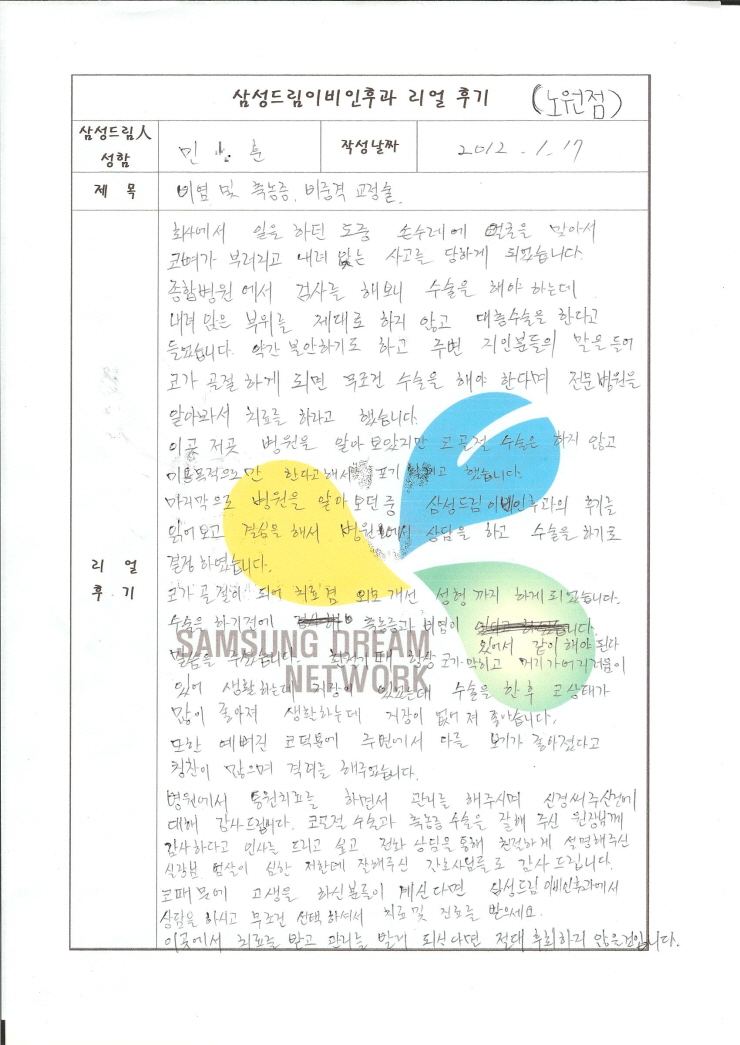 삼성드림이비인후과 리얼 후기 (노원점)
삼성드림人 성함 민 상 훈 작성날짜 2012 . 1. 17
제 목 비염 및 축농증, 비중격 교정술.
리 얼
후 기
회사에서 일을 하던 도중 손수레에 얼굴을 맞아서
코뼈가 부러지고 내려 앉는 사고를 당하게 되었습니다.
종합병원 에서 검사를 해보니 수술을 해야 하는데
내려 앉은 부위를 제대로 하지 않고 대충수술을 한다고
들었습니다. 약간 불안하기도 하고 주변 지인분들의 말을 들어
코가 골절 하게 되면 무조건 수술을 해야 한다며 전문병원을
알아봐서 치료를 하라고 했습니다.
이곳 저곳 병원을 알아 보았지만 코골절 수술은 하지 않고
미용목적으로만 한다고해서 포기 했습니다.
마지막으로 병원을 알아 보던중 삼성드림이비인후과의 후기를
읽어보고 결심을 해서 병원에서 상담을 하고 수술을 하기로
결정 하였습니다.
코가 골절이 되어 치료겸 외모개선 성형 까지 하게 되었습니다.
수술을 하기전에 축농증과 비염이 있어서 같이 해야 된다
말씀을 주셨습니다. 항상 코가 막히고 머리가 어지러움이
있어 생활하는데 지장이 있었는데 수술을 한 후 코상태가
많이 좋아져 생활하는데 지장이 없어 져 좋았습니다.
또한 예뻐진 코덕분에 주변에서 다들 보기가 좋아졌다고
칭찬이 많으며 격려를 해주었습니다.
병원에서 통원치료를 하면서 관리를 해주시며 신경써주신것에
대해 감사드립니다. 코골절 수술과 축농증 수술을 잘해 주신 원장님께
감사하다고 인사를 드리고 싶고 전화 상담을 통해 친절하게 설명해주신
실장님 엄살이 심한 저한테 잘해주신 간호사님들로 감사 드립니다.
코때문에 고생을 하신분들이 계신다면 삼성드림이비인후과에서
상담을 하시고 무조건 선택 하셔서 치료및 진료를 받으세요.
이곳에서 치료를 받고 관리를 받게 되신다면 절대 후회하지 않을겁니다.
SAMSUNG DREAM
NETWORK